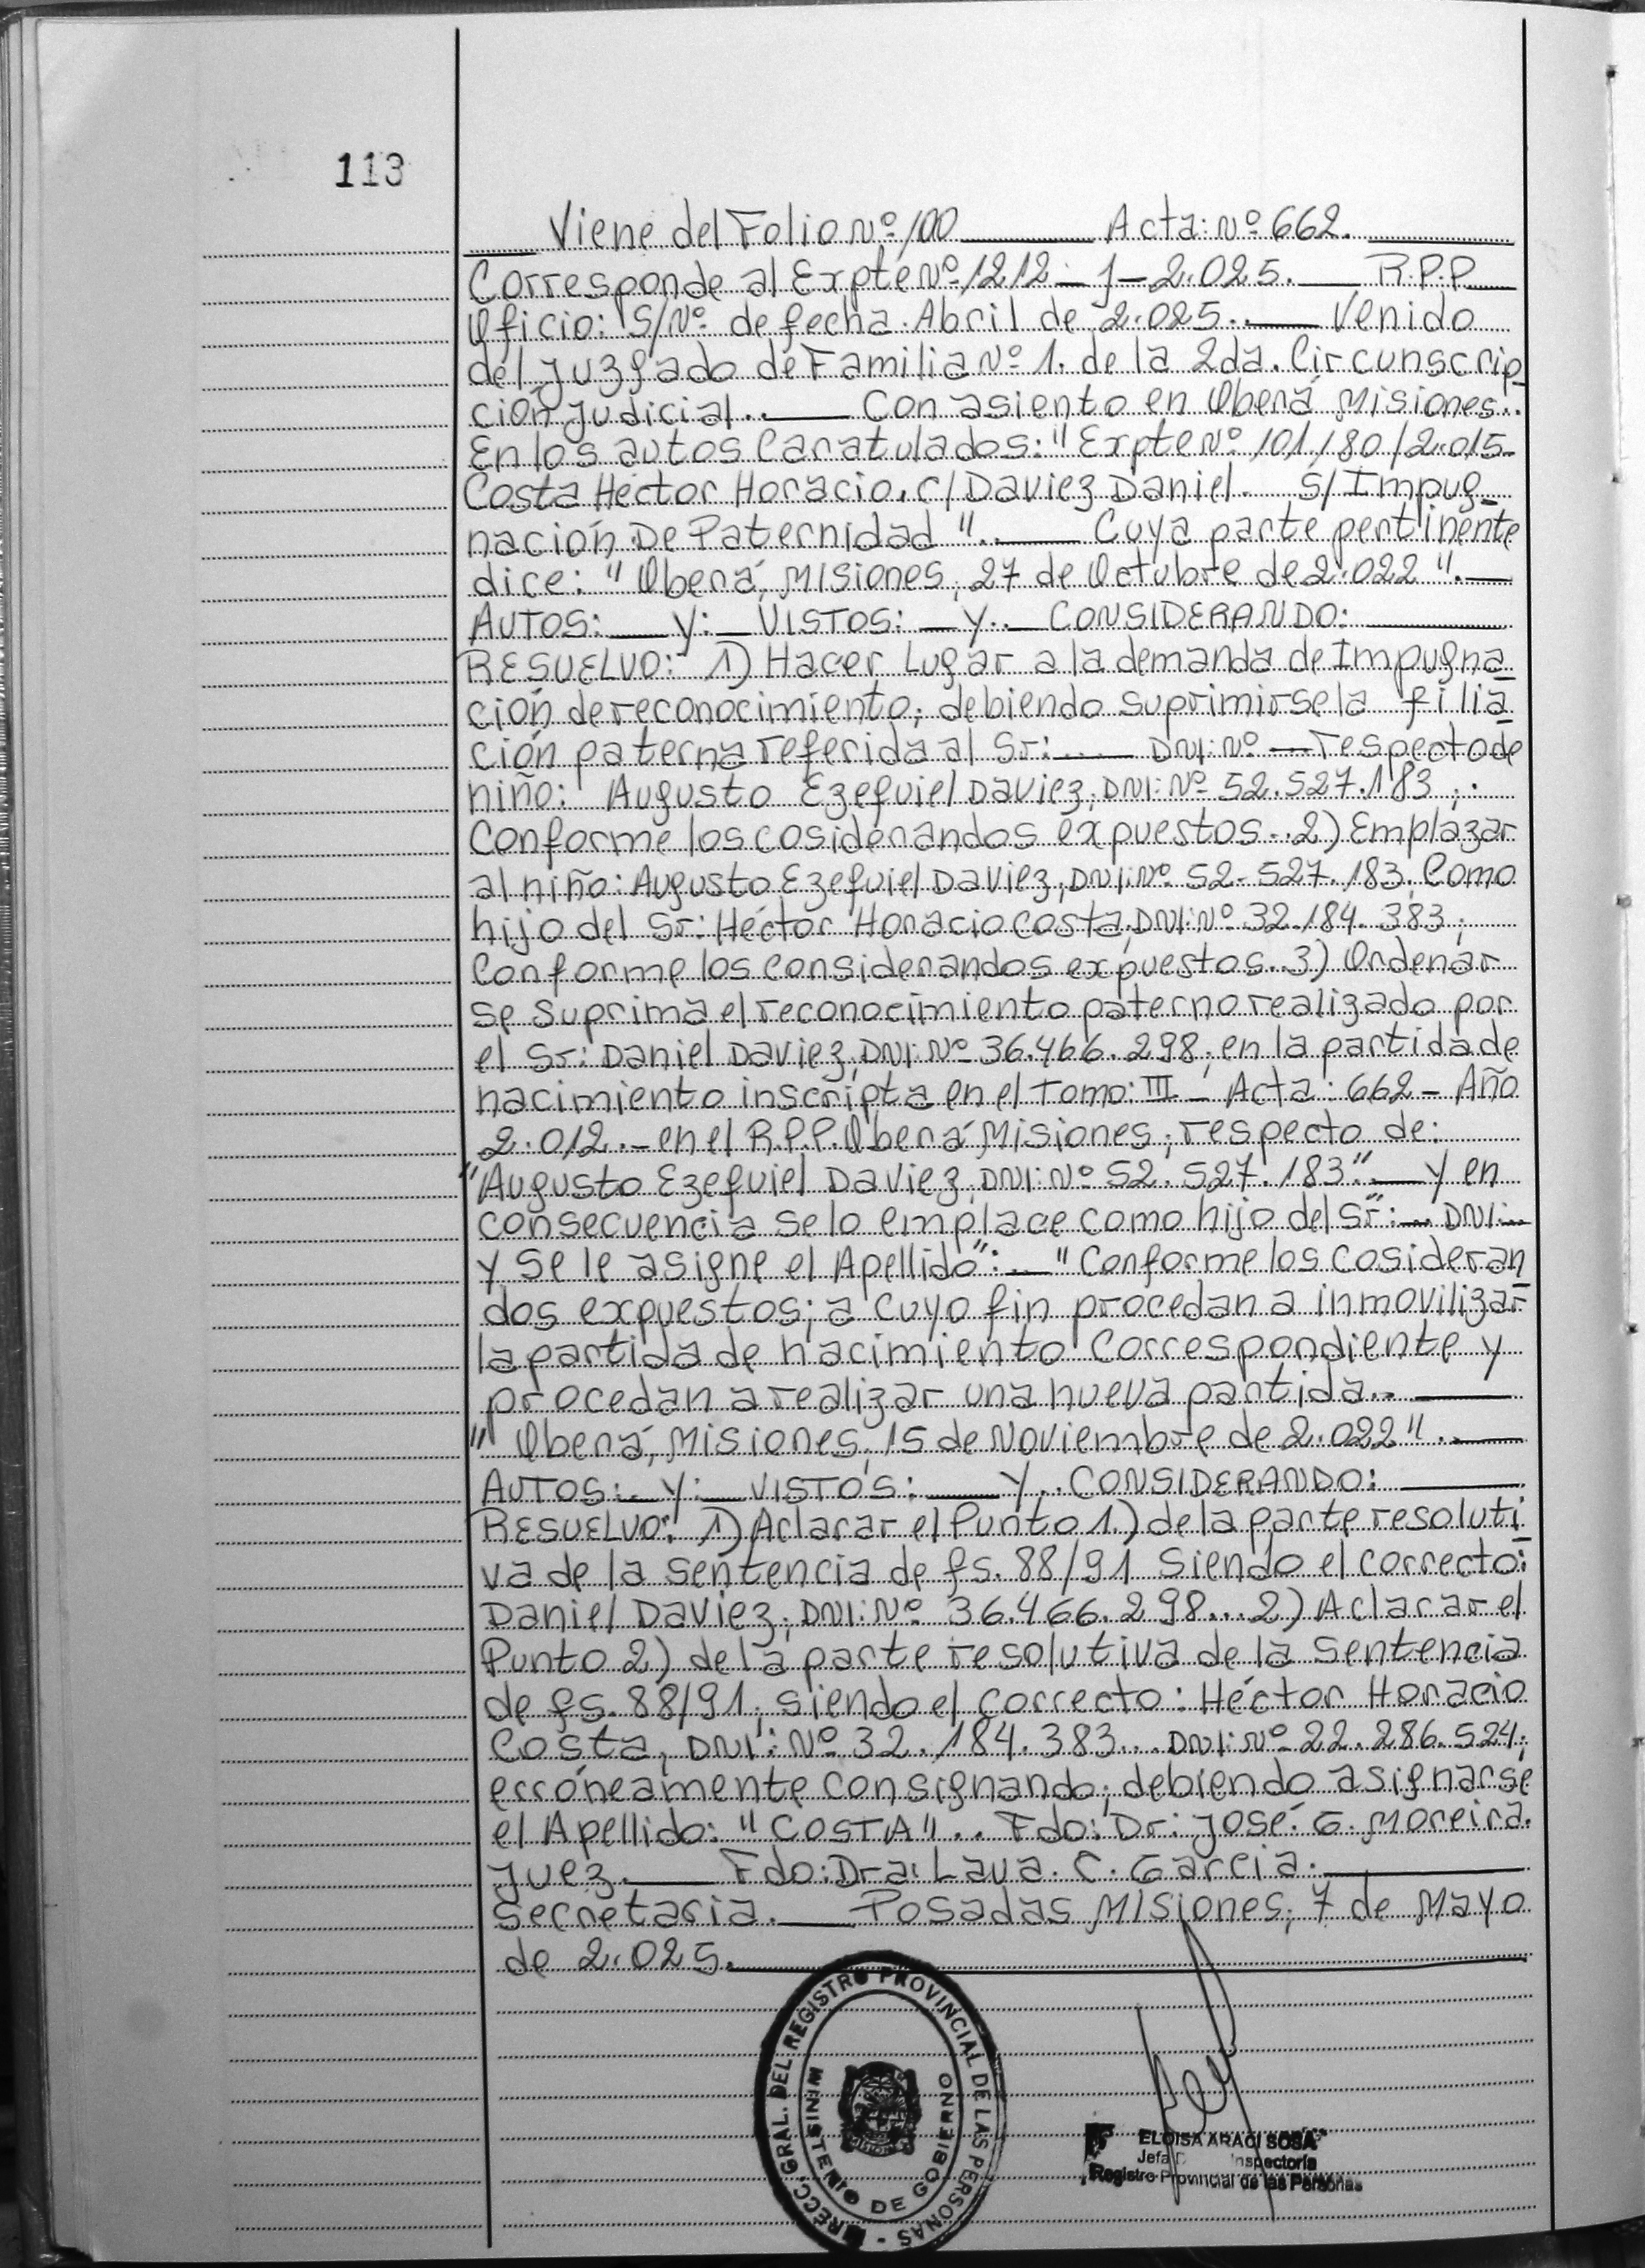 113
Viene del Folio Nº 100 ___ Acta: Nº 662. ___
Corresponde al Expte Nº 1212 - J - 2.025. ___ R.P.P.
Oficio: S/Nº de fecha Abril de 2.025.. ___ Venido
del Juzgado de Familia Nº 1. de la 2da. Circunscrip-
ción Judicial.. ___ Con asiento en Oberá Misiones..
En los autos Caratulados: "Expte Nº 101180/2.015-
Costa Héctor Horacio. c/ Daviez Daniel. S/ Impug-
nación De Paternidad ".. ___ Cuya parte pertinente
dice: "Oberá, Misiones, 27 de Octubre de 2.022". ___
AUTOS: ___ Y: ___ VISTOS: ___ Y.. CONSIDERANDO: ___
RESUELVO: 1) Hacer Lugar a la demanda de Impugna-
ción de reconocimiento; debiendo suprimirse la filia-
ción paterna referida al Sr: ..... DNI: Nº ___ respecto de
niño: Augusto Ezequiel Daviez; DNI: Nº 52.527.183;.
Conforme los cosiderandos expuestos.. 2) Emplazar
al niño: Augusto Ezequiel Daviez; DNI: Nº 52.527.183; Como
hijo del Sr: Héctor Horacio Costa; DNI: Nº 32.184.383;
Conforme los Considerandos expuestos.. 3) Ordenar
se suprima el reconocimiento paterno realizado por
el Sr: Daniel Daviez; DNI: Nº 36.466.298; en la partida de
nacimiento inscripta en el Tomo: III - Acta: 662 - Año
2.012. - en el R.P.P. Oberá Misiones; respecto de:
"Augusto Ezequiel Daviez, DNI: Nº 52.527.183" ___ y en
consecuencia se lo emplace como hijo del Sr: ___ DNI: ...
y se le asigne el Apellido": ___ "Conforme los Cosideran-
dos expuestos; a cuyo fin procedan a inmovilizar
la partida de nacimiento Correspondiente y
procedan a realizar una nueva partida.. ___
" Oberá, Misiones, 15 de Noviembre de 2.022". ___
AUTOS: ___ Y: ___ VISTOS: ___ Y.. CONSIDERANDO: ___
RESUELVO: 1) Aclarar el Punto 1.) de la parte resoluti-
va de la sentencia de fs. 88/91 Siendo el correcto:
Daniel Daviez; DNI: Nº 36.466.298... 2) Aclarar el
Punto 2) de la parte resolutiva de la sentencia
de fs. 88/91; siendo el correcto: Héctor Horacio
Costa, DNI: Nº 32.184.383... DNI: Nº 22.286.524;
erróneamente consignando; debiendo asignarse
el Apellido: "COSTA".. Fdo: Dr: José. G. Moreira.
Juez. ___ Fdo: Dra: Laua. C. Garcia. ___
Secretaria. ___ Posadas Misiones; 7 de Mayo
de 2.025. ___
GRAL. DEL REGISTRO PROVINCIAL DE LAS PERSONAS -
MINISTERIO DE GOBIERNO
ELOISA ARACI SOSA
Jefa Inspectoría
Registro Provincial de las Personas